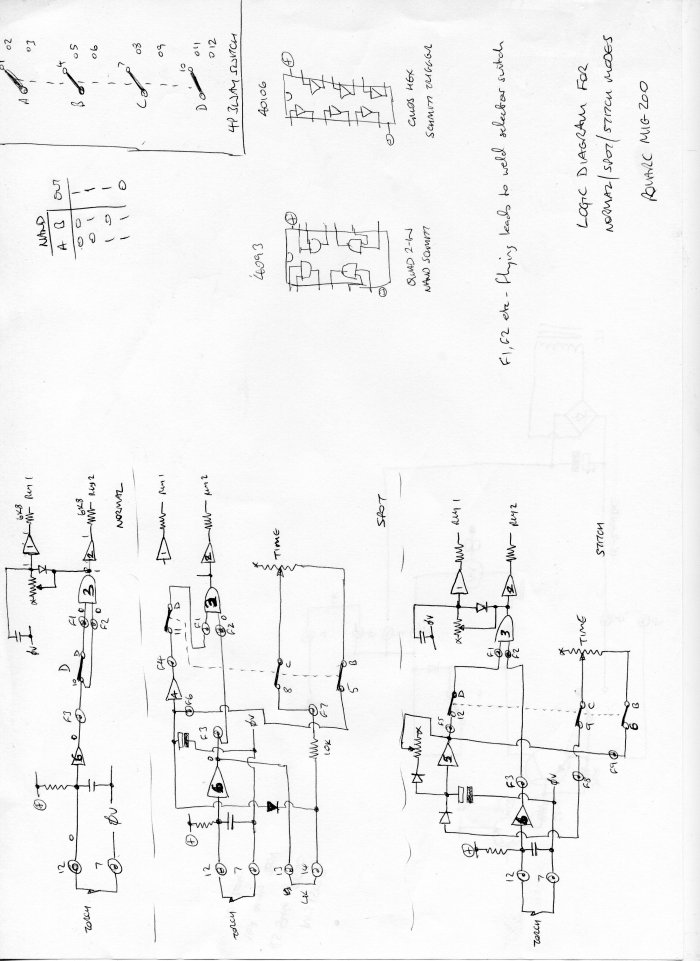 LOGIC DIAGRAM FOR
NORMAL/SPOT/STITCH MODES
F1, F2 etc - flying leads to weld selector switch
4P 3WAY SWITCH
A
01
02
03
B
4
05
06
C
7
08
09
D
10
011
012
40106
CMOS HEX
SCHMITT TRIGGER
4093
QUAD 2-IN
NAND SCHMITT
NAND
A B OUT
0 0 1
0 1 1
1 0 1
1 1 0
NORMAL
TORCH
12
7
0V
6
F3
10
D
F1
F2
3
1
2
6K8
6K8
RLY1
RLY2
0V
SPOT
TORCH
12
7
13
14
LK
6
F3
F4
F6
F7
10K
0V
11
D
F1
F2
3
1
2
RLY1
RLY2
TIME
8
C
5
B
STITCH
TORCH
12
7
6
F3
0V
5
F5
12
D
F1
F2
3
1
2
RLY1
RLY2
0V
TIME
F8
9
C
F9
6
B